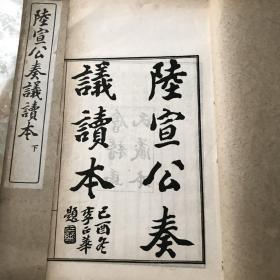 陸宣公奏
議讀本
己酉冬
李正華
題
陸宣公奏議讀本 下